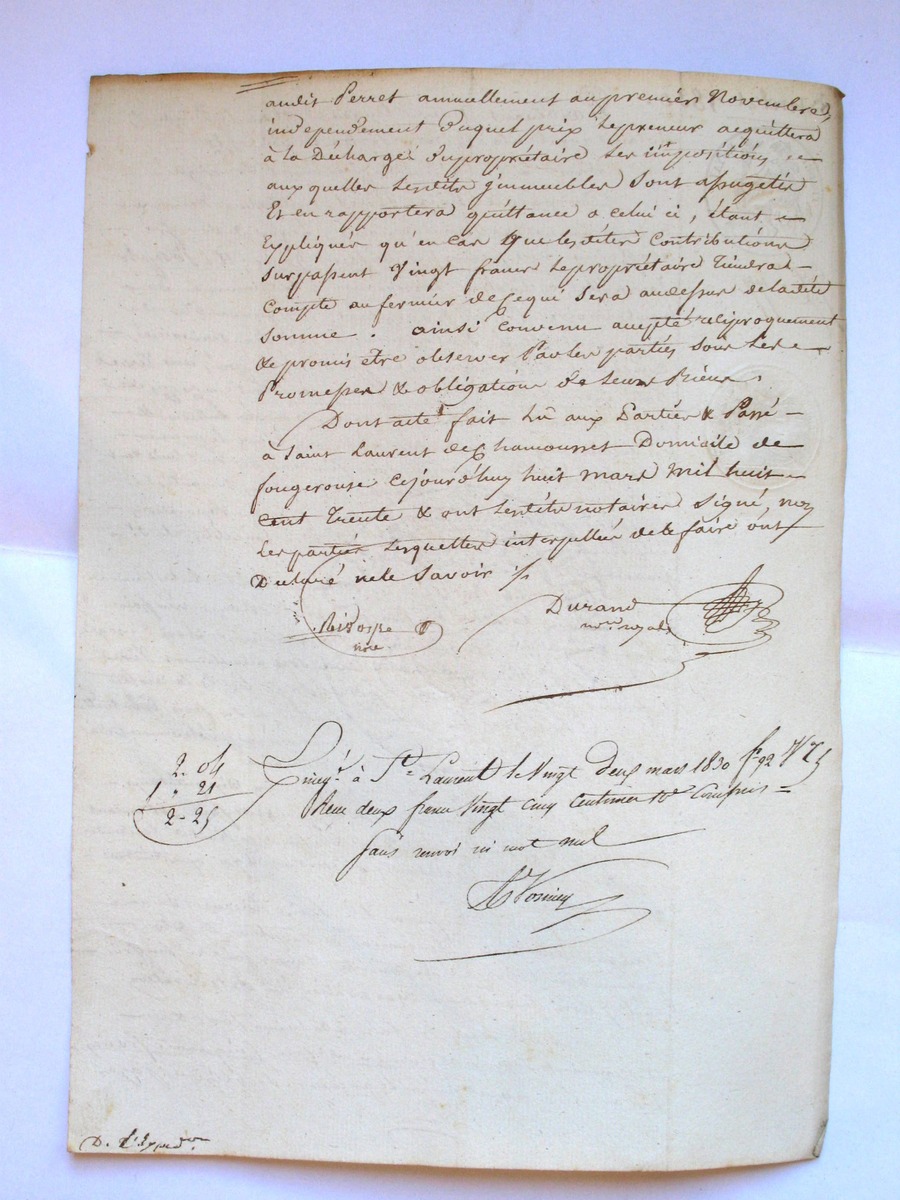 audit Perret annuellement au premier Novembre,
independament duquel prix le preneur acquittera
à la Décharge du propriétaire les impositions
aux quelles lesdits immeubles sont assugetis
Et en rapportera quittance a celui ci, étant
Expliqués qu'en cas que lesdites Contributions
surpassent Vingt francs le propriétaire Tiendra
Compte au fermier de Ce qui sera au dessus de ladite
somme. ainsi convenu accepté réciproquement
& promis être observer Par les parties sous les
Promesses & obligations de leurs Biens.
Dont acte fait lû aux Parties & Passé
à Saint Laurent de Chamousset Domicile de
fougerouse Cejourd'huy huit mars mil huit
cent trente & ont lesdits notaires signé, non
les parties lesquelles interpellées de le faire ont
Declaré ne le savoir ./.
Durand
nre royal
nore
2. 04
1. 21
2-25
à St Laurent le Vingt deux mars 1830 f° 92
deux francs Vingt cinq Centimes Compris
sans renvoi ni mot nul